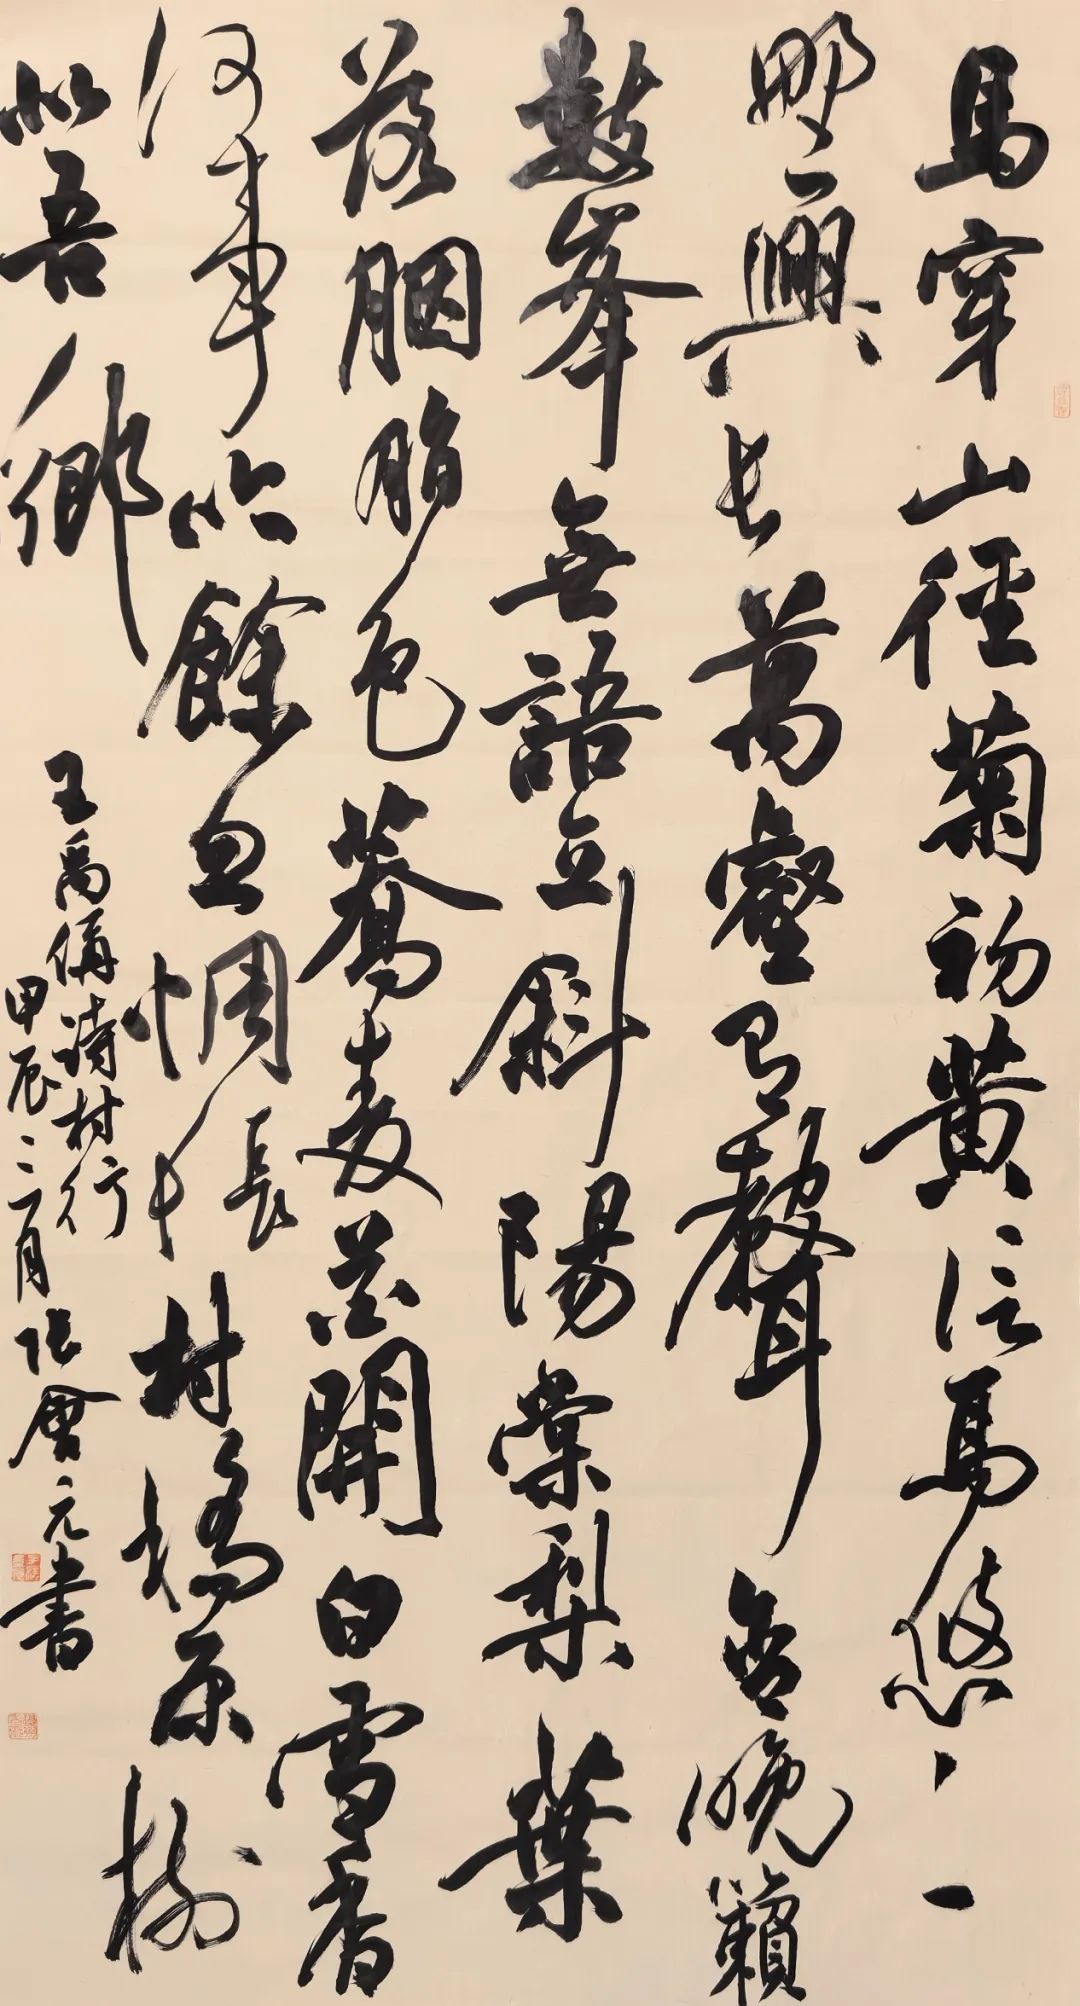 馬穿山徑菊初黃信馬悠〻
野興長萬壑有聲含晚籟
數峯無語立斜陽棠梨葉
落胭脂色蕎麥花開白雪香
何事吟餘忽惆悵村橋原樹
似吾鄉
王禹偁詩村行
甲辰三月張會元書